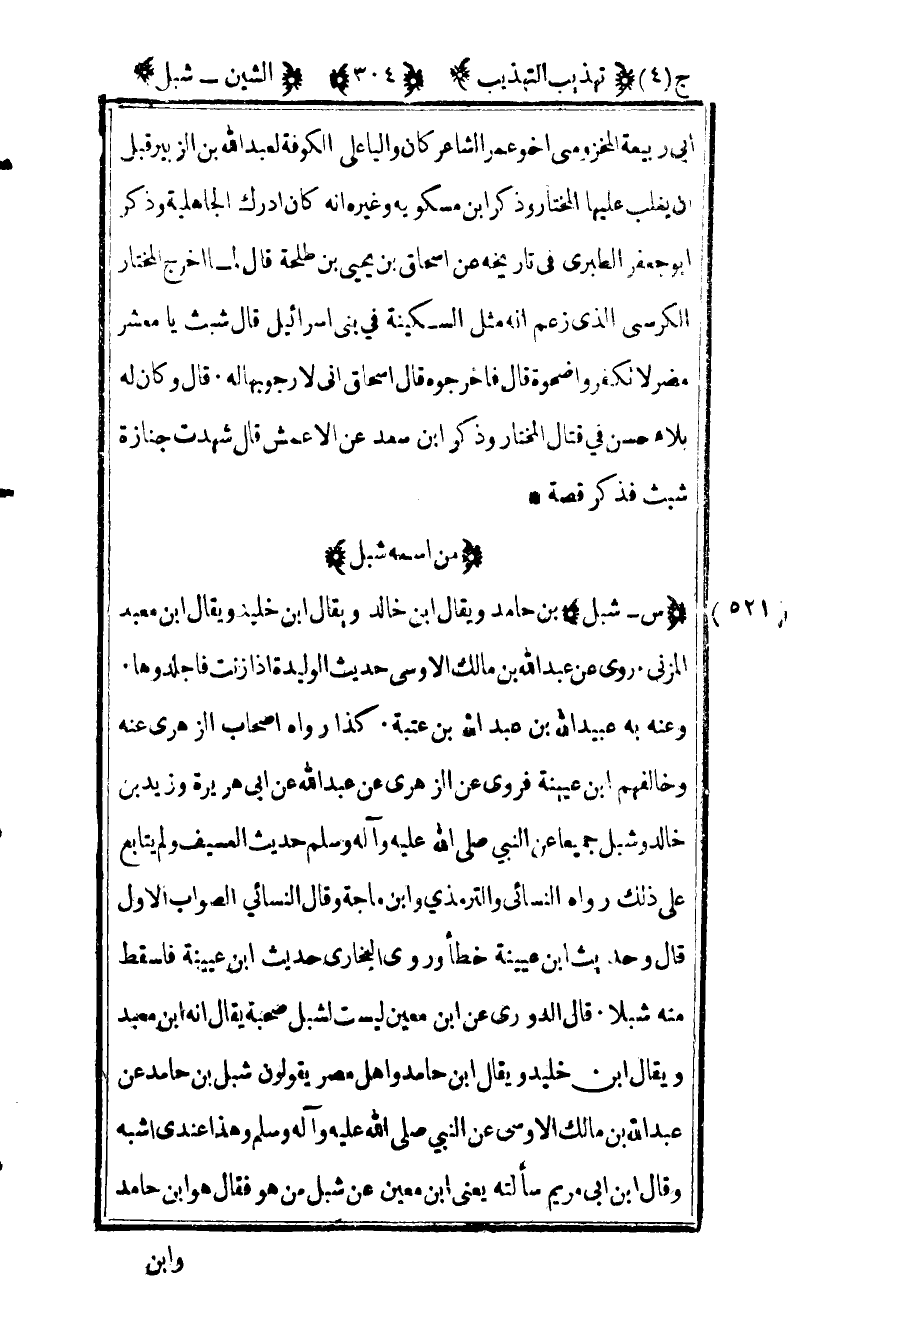 ج (٤) ﴿ تهذيب التهذيب ﴾ ﴿ ٣٠٤ ﴾ ﴿ الشين ــ شبل ﴾
أبي ربيعة المخزومى اخو عمر الشاعر كان واليا على الكوفة لعبد الله بن الزبير قبل
ان يغلب عليها المختار وذكر ابن مسكويه وغيره انه كان ادرك الجاهلية وذكر
ابو جعفر الطبرى فى تاريخه عن اسحاق بن يحيى بن طلحة قال لما اخرج المختار
الكرسى الذى زعم انه مثل السكينة في بنى اسرائيل قال شبث يا معشر
مضر لا تكفروا ضحوة قال فاخرجوه قال اسحاق انى لارجو بها له ٠ قال وكان له
بلاء حسن في قتال المختار وذكر ابن سعد عن الاعمش قال شهدت جنازة
شبث فذكر قصة *
﴿ من اسمه شبل ﴾
(٥٢١) ﴿ س ــ شبل ﴾ بن حامد ويقال ابن خالد ويقال ابن خليد ويقال ابن معبد
المزنى ٠ روى عن عبد الله بن مالك الاوسى حديث الوليدة اذا زنت فاجلدوها ٠
وعنه به عبيد الله بن عبد الله بن عتبة ٠ كذا رواه اصحاب الزهرى عنه
وخالفهم ابن عيينة فروى عن الزهرى عن عبد الله عن ابى هريرة وزيد بن
خالد وشبل جميعا عن النبي صلى الله عليه وآله وسلم حديث العسيف ولم يتابع
على ذلك رواه النسائى والترمذي وابن ماجة وقال النسائي الصواب الاول
قال وحديث ابن عيينة خطأ وروى البخارى حديث ابن عيينة فاسقط
منه شبلا ٠ قال الدورى عن ابن معين ليست لشبل صحبة يقال انه ابن معبد
ويقال ابن خليد ويقال ابن حامد واهل مصر يقولون شبل بن حامد عن
عبد الله بن مالك الاوسى عن النبي صلى الله عليه وآله وسلم وهذا عندى اشبه
وقال ابن ابى مريم سألته يعنى ابن معين عن شبل من هو فقال هو ابن حامد
وابن